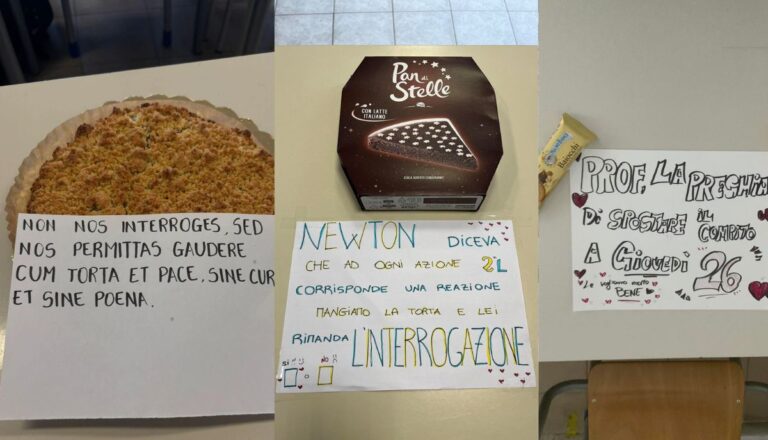 NON NOS INTERROGES, SED
NOS PERMITTAS GAUDERE
CUM TORTA ET PACE, SINE CUR
ET SINE POENA.
Pan di
Stelle
CON LATTE
ITALIANO
NEWTON DICEVA
CHE AD OGNI AZIONE 2°L
CORRISPONDE UNA REAZIONE
MANGIAMO LA TORTA E LEI
RIMANDA L'INTERROGAZIONE
SI NO
Baiocchi
PROF. LA PREGHIA
DI SPOSTARE IL
COMPITO
A GIOVEDÌ 26
Le vogliamo molto
BENE